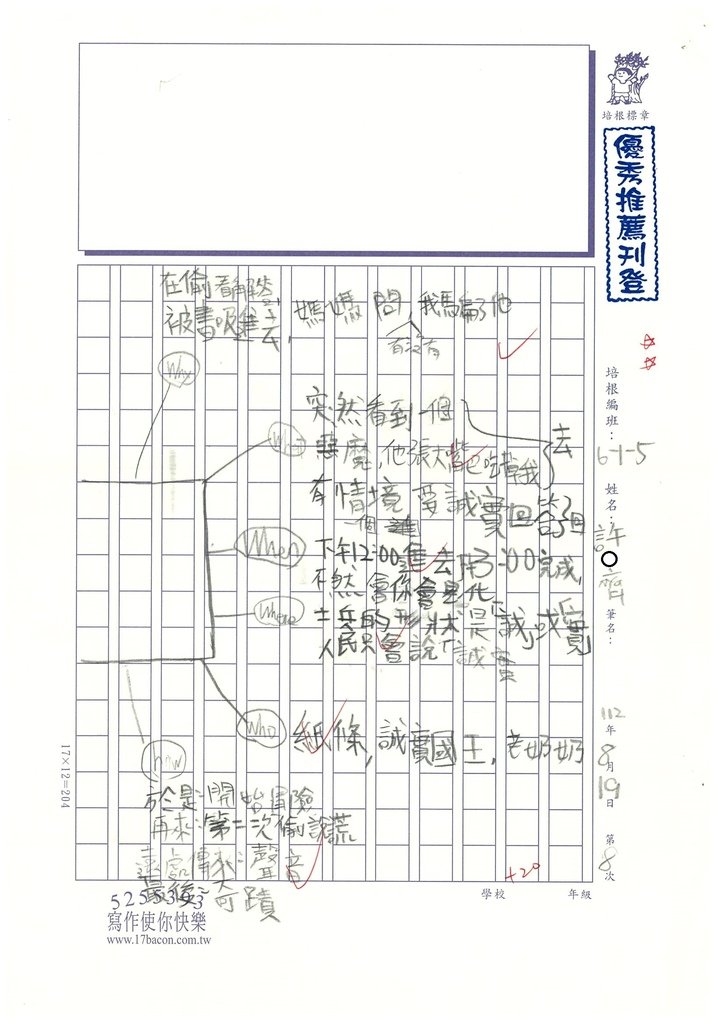 培根標章
優秀推薦刊登
培根編班：
6-1-5
姓名：
許○齊
筆名：
112年8月19日
第8次
在偷看
被書吸進去，媽媽問，我騙了他
有沒有
Why
突然看到一個
惡魔，他張大嘴巴吃掉我
去
What
有情境要誠實回答
一個
When
下午12:00進去，用3:00完成，
不然會你會是化
Where
士兵的形狀是「誠」或「實」
人民只會說「誠實」
Who
紙條，誠實國王，老奶奶
how
於是：開始冒險
再來：第二次偷說謊
遠處傳來：聲音
最後：奇蹟
17×12=204
+20
學校
年級
寫作使你快樂
www.17bacon.com.tw